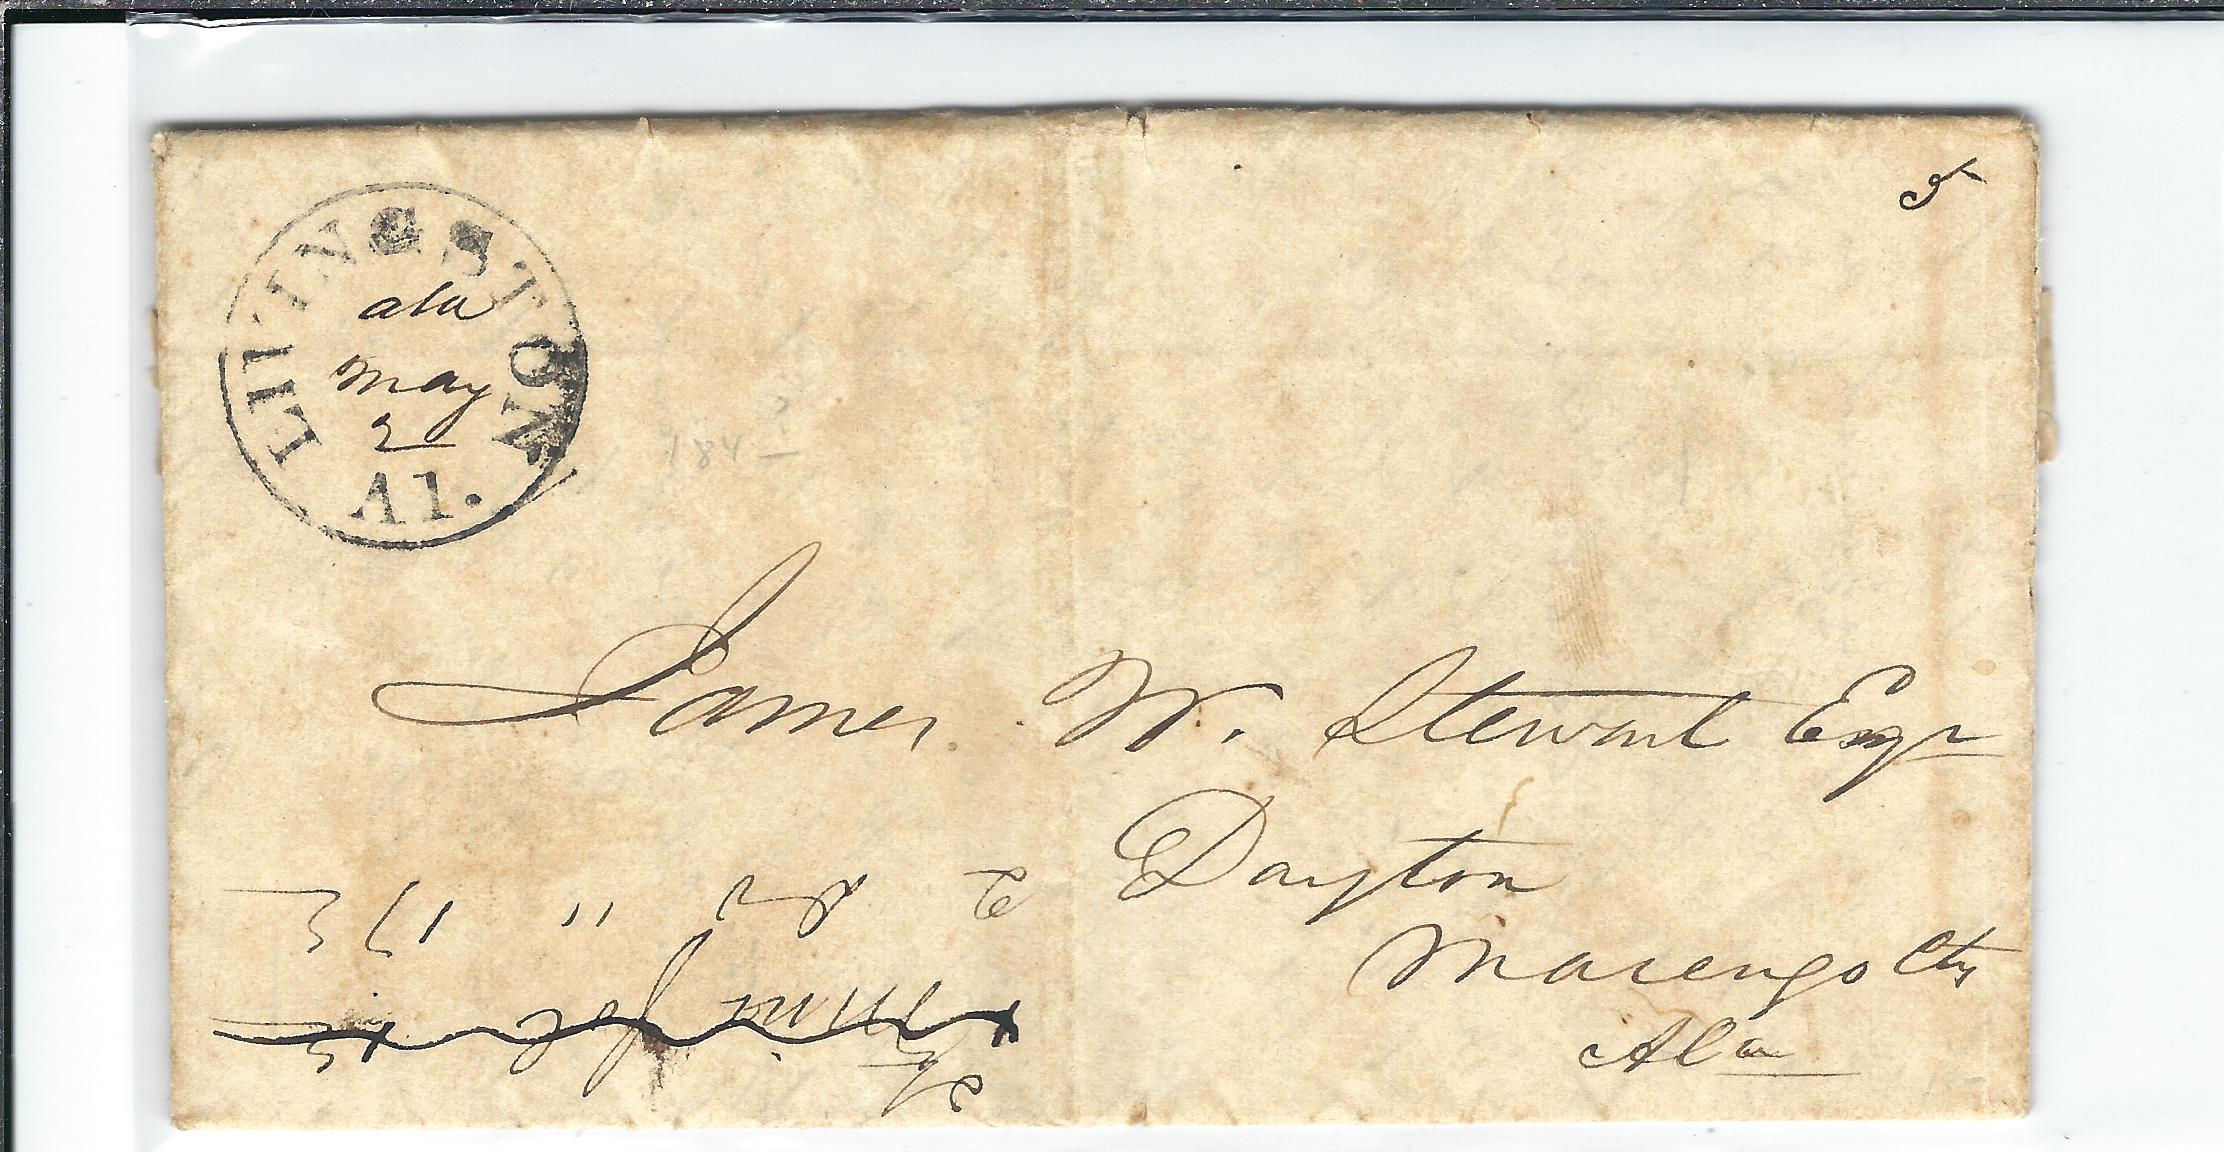 LIVINGSTON
ala
May
2
Al.
5
184-?
James W. Stewart Esqr
Dayton
Marengo Cty
Ala
2 do " 17